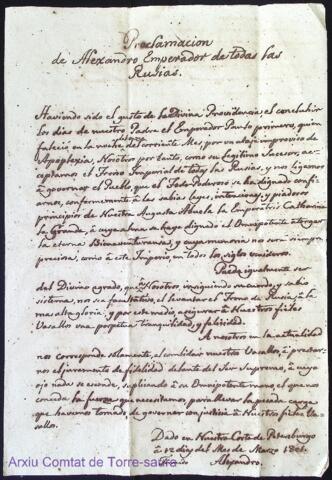 Proclamacion
de Alexandro Emperador de todas las
Rusias.
Haviendo sido el gusto de la Divina Providencia, el concluhir
los dias de nuestro Padre el Emperador Paulo primero, quien
falleció en la noche del corriente Mes, por un ataque improviso de
Apoplexia, Nosotros por tanto, como su legitimo Sucesor, ac-
ceptamos el Trono Imperial de todas las Rusias, y nos ligamos
á governar el Pueblo, que el Todo Poderoso se ha dignado confi-
arnos, conformemente á las sabias leyes, intenciones, y piadosos
principios de Nuestra Augusta Abuela la Emperatris Catharina
la Grande, á cuya alma se haga dignado el Omnipotente otorgar
la eterna Bienaventuransa, y cuya memoria nos sera siempre
preciosa, como á este Imperio, en todos los siglos venideros.
Pueda igualmente ser
del Divino agrado, que Nosotros, insiguiendo su cuerdo, y sabio
sistema, nos sea facultativo, el levantar el Trono de Rusia á la
mas alta gloria, y por este medio, asegurar á Nuestros fieles
Vasallos una perpetua tranquilidad, y felicidad.
A nosotros en la actualidad
nos corresponde solamente, el combidar nuestros Vasallos, á prestar-
nos el juramento de fidelidad delante del Ser Supremo, á cuyo
ojo nada se esconde, suplicando á su Omnipotente mano, el que nos
conceda la fuerza, que necesitamos, para llevar la pesada carga
que havemos tomado, de governar con justicia á Nuestros fieles Va-
sallos.
Dado en Nuestra Corte de Petersburgo
á 12 dias del Mes de Marzo 1801.
Alexandro.
Arxiu Comtat de Torre-saura